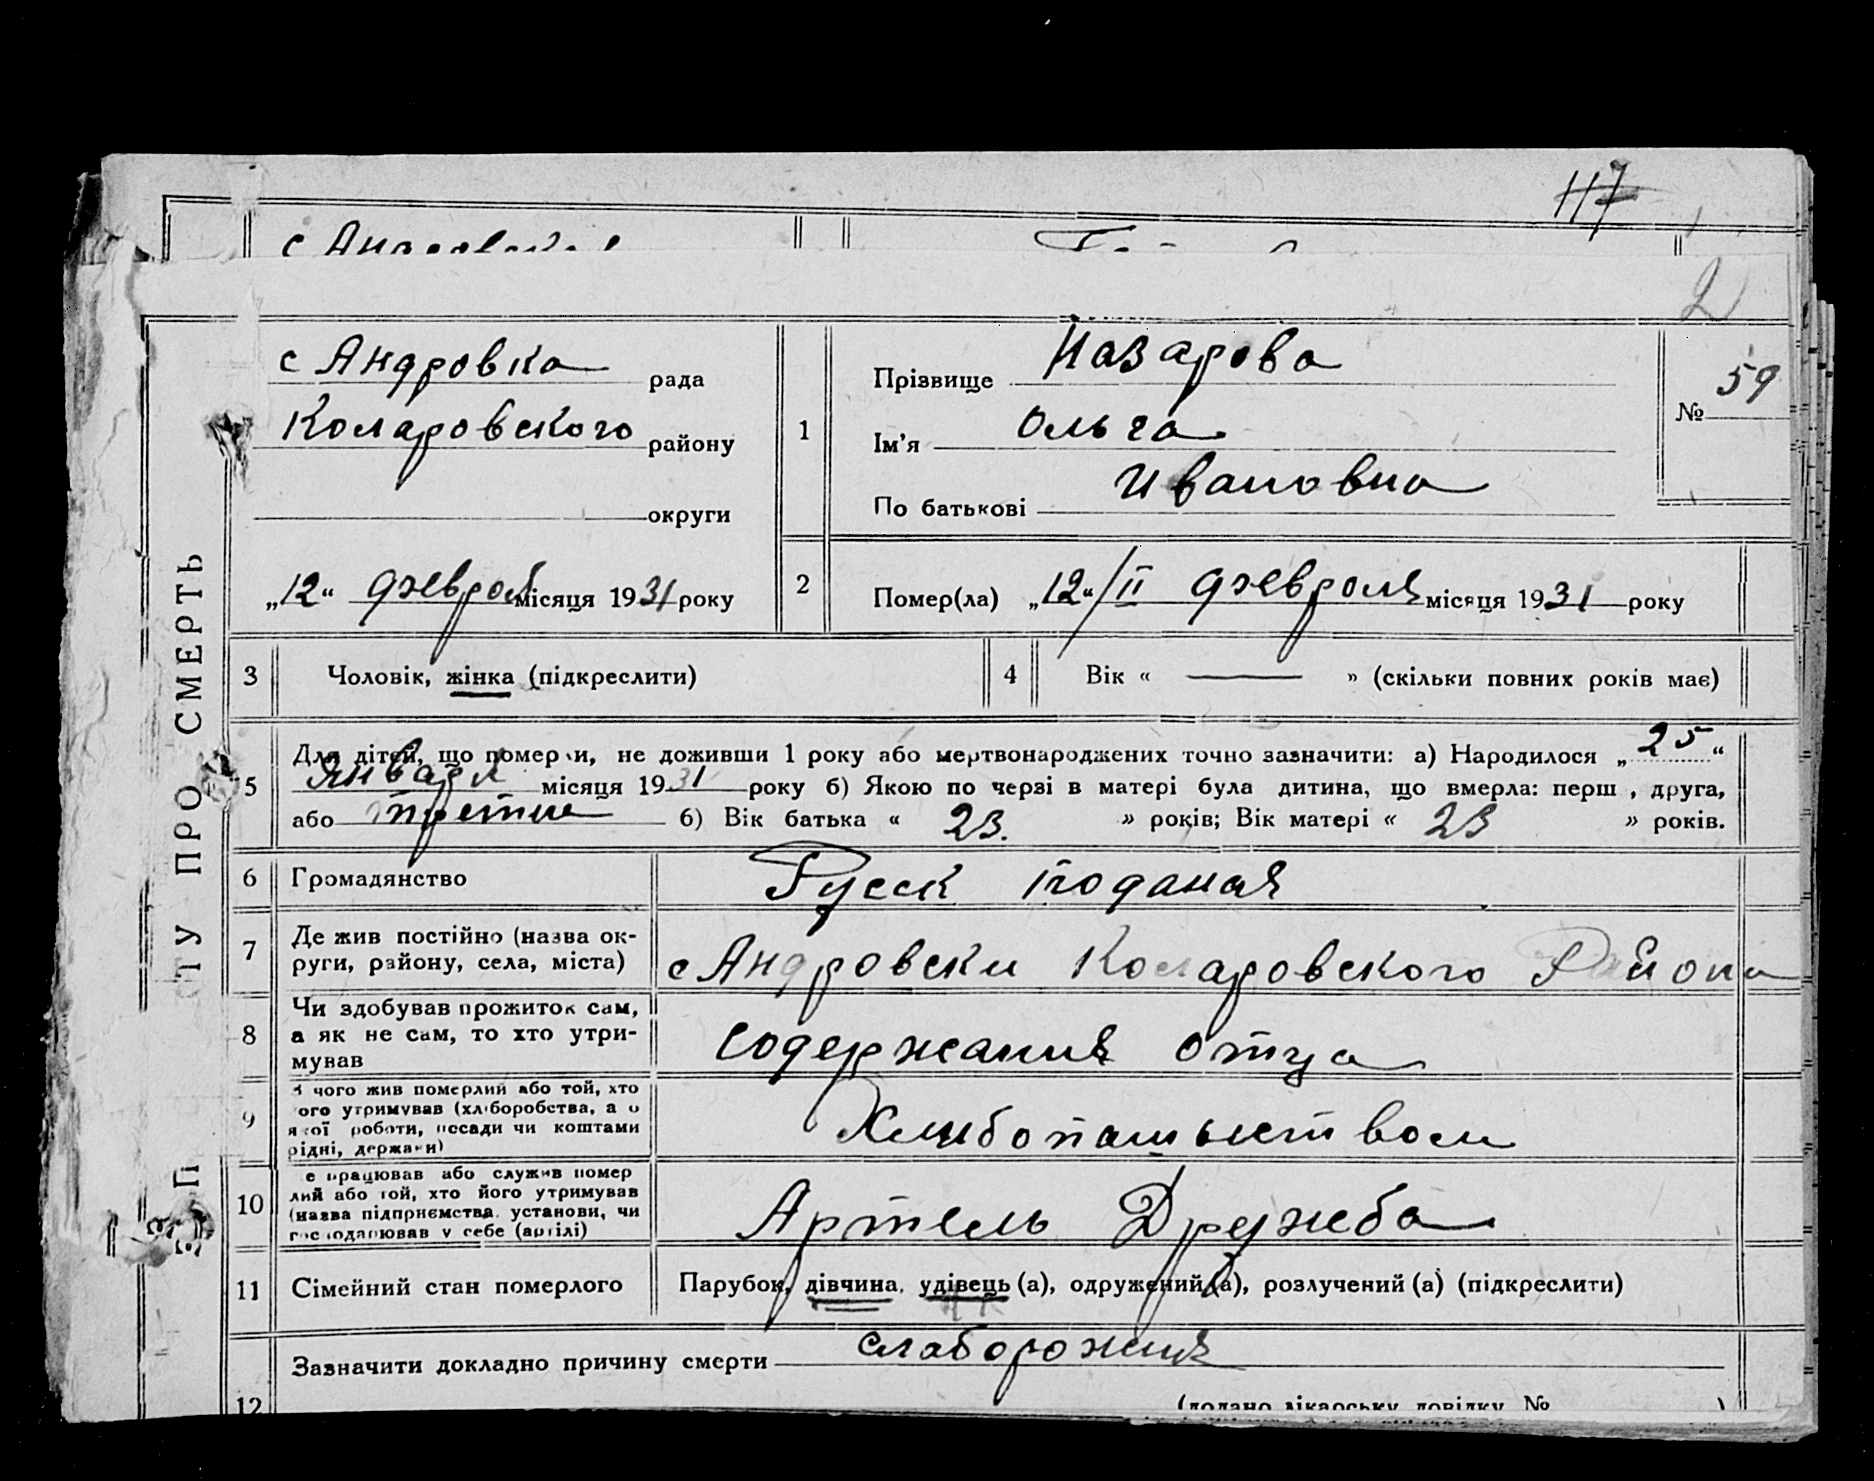 117
2
с Андровка рада
Коларовского району
округи
„12“ феврол місяця 1931 року
1
Прізвище Назарова
Ім'я Ольга
По батькові Ивановна
№ 59
2
Помер(ла) „12“/II февроля місяця 1931 року
3 Чоловік, жінка (підкреслити)
4 Вік « — » (скільки повних років має)
5 Для дітей, що померли, не доживши 1 року або мертвонароджених точно зазначити: а) Народилося „25“
Января місяця 1931 року б) Якою по черзі в матері була дитина, що вмерла: перш , друга,
або третие б) Вік батька « 23. » років; Вік матері « 23 » років.
6 Громадянство Русск поданая
7 Де жив постійно (назва ок-
руги, району, села, міста) с Андровски Коларовского Района
8 Чи здобував прожиток сам,
а як не сам, то хто утри-
мував содержания отца
9 З чого жив померлий або той, хто
ого утримував (хліборобства, а о
якої роботи, посади чи коштами
рідні, держави) Хлибопашыством
10 е працював або служив помер
лий або той, хто його утримував
(назва підприємства, установи, чи
господарював у себе (артілі) Артель Дружба
11 Сімейний стан померлого Парубок, дівчина, удівець (а), одружений (а), розлучений (а) (підкреслити)
12 Зазначити докладно причину смерти слаборожния
(додано лікарську довідку № )
ТУ ПРО СМЕРТЬ